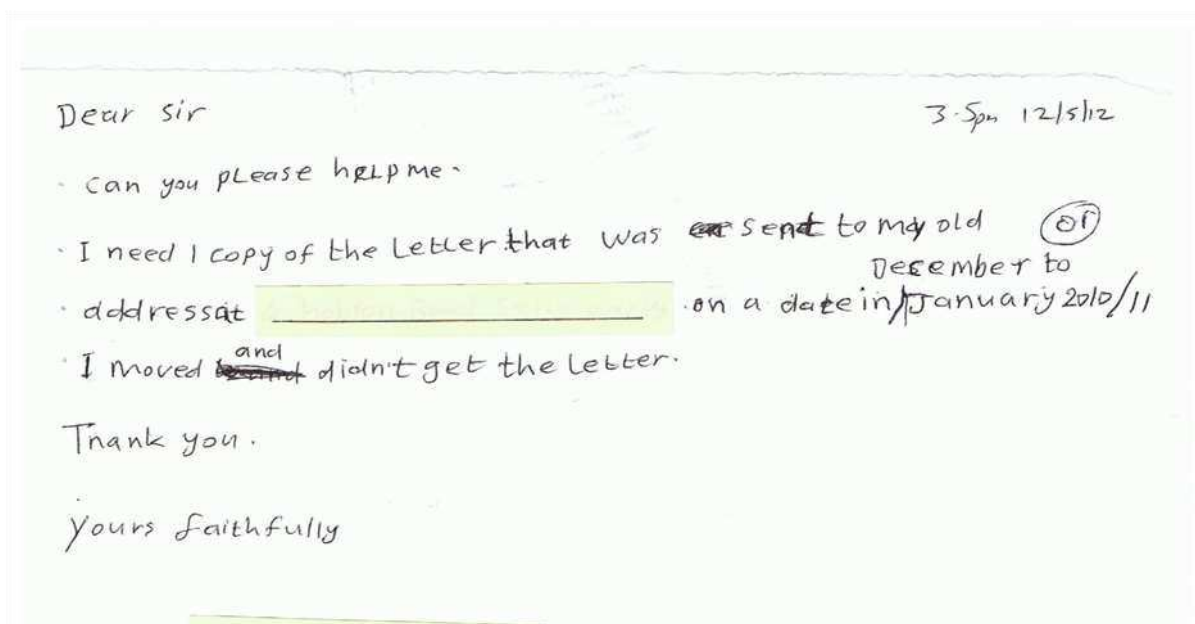 Dear Sir 3.5pm 12/5/12
Can you please help me.
I need 1 copy of the Letter that was sent to my old or
December to
address at on a date in January 2010/11
and
I moved didn't get the letter.
Thank you.
Yours faithfully